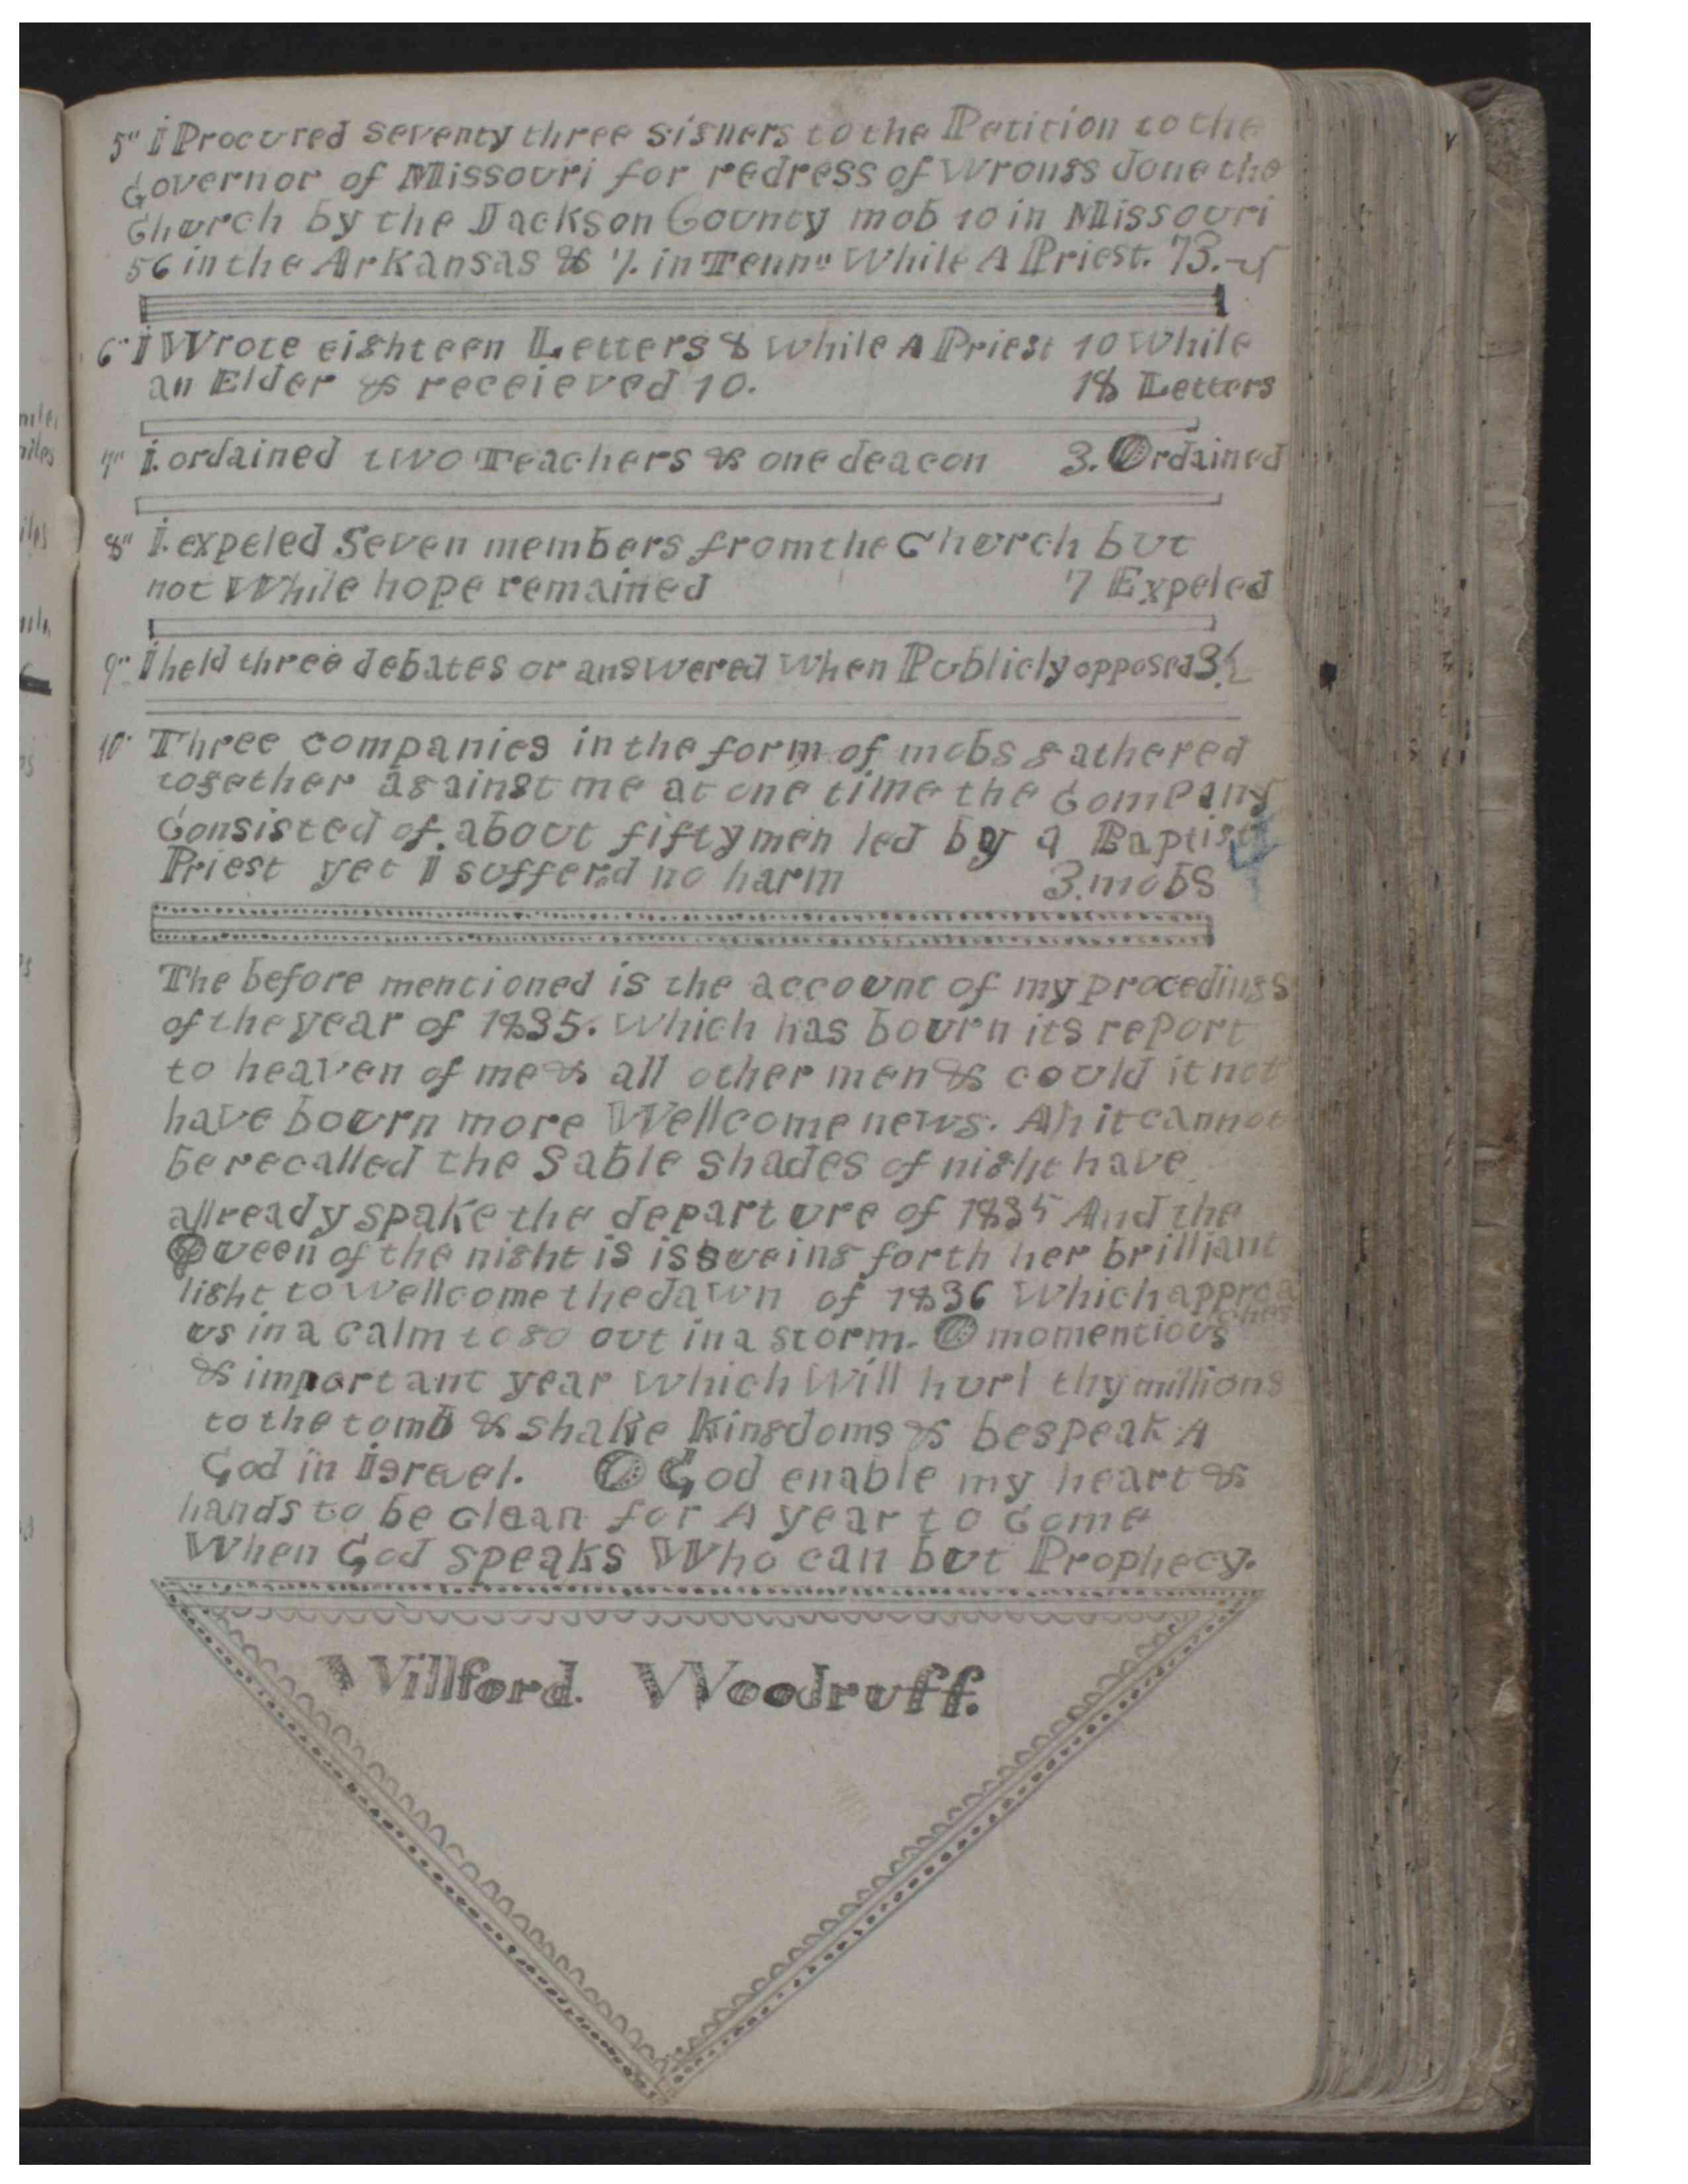 5" I Procured seventy three signers to the Petition to the
Governor of Missouri for redress of wrongs done the
Church by the Jackson County mob 10 in Missouri
56 in the Arkansas & 7. in Tenn" While A Priest. 73.
6" I Wrote eighteen Letters 8 while A Priest 10 While
an Elder & receieved 10. 18 Letters
7" I. ordained two Teachers & one deacon 3. Ordained
8" I. expeled Seven members from the Church but
not While hope remained 7 Expeled
9" I held three debates or answered when Publicly opposed 3.
10" Three companies in the form of mobs gathered
together against me at one time the Company
Consisted of about fifty men led by a Baptist
Priest yet I sufferd no harm 3. mobs
The before mentioned is the account of my procedings
of the year of 1835. which has bourn its report
to heaven of me & all other men & could it not
have bourn more Wellcome news. Ah it cannot
be recalled the Sable shades of night have
allready spake the departure of 1835 And the
Queen of the night is issueing forth her brilliant
light to wellcome the dawn of 1836 which approa
ches
us in a calm to go out in a storm. O momentious
& important year which will hurl thy millions
to the tomb & shake Kingdoms & bespeak A
God in Israel. O God enable my heart &
hands to be clean for A year to Come
When God speaks Who can but Prophecy.
Willford. Woodruff.